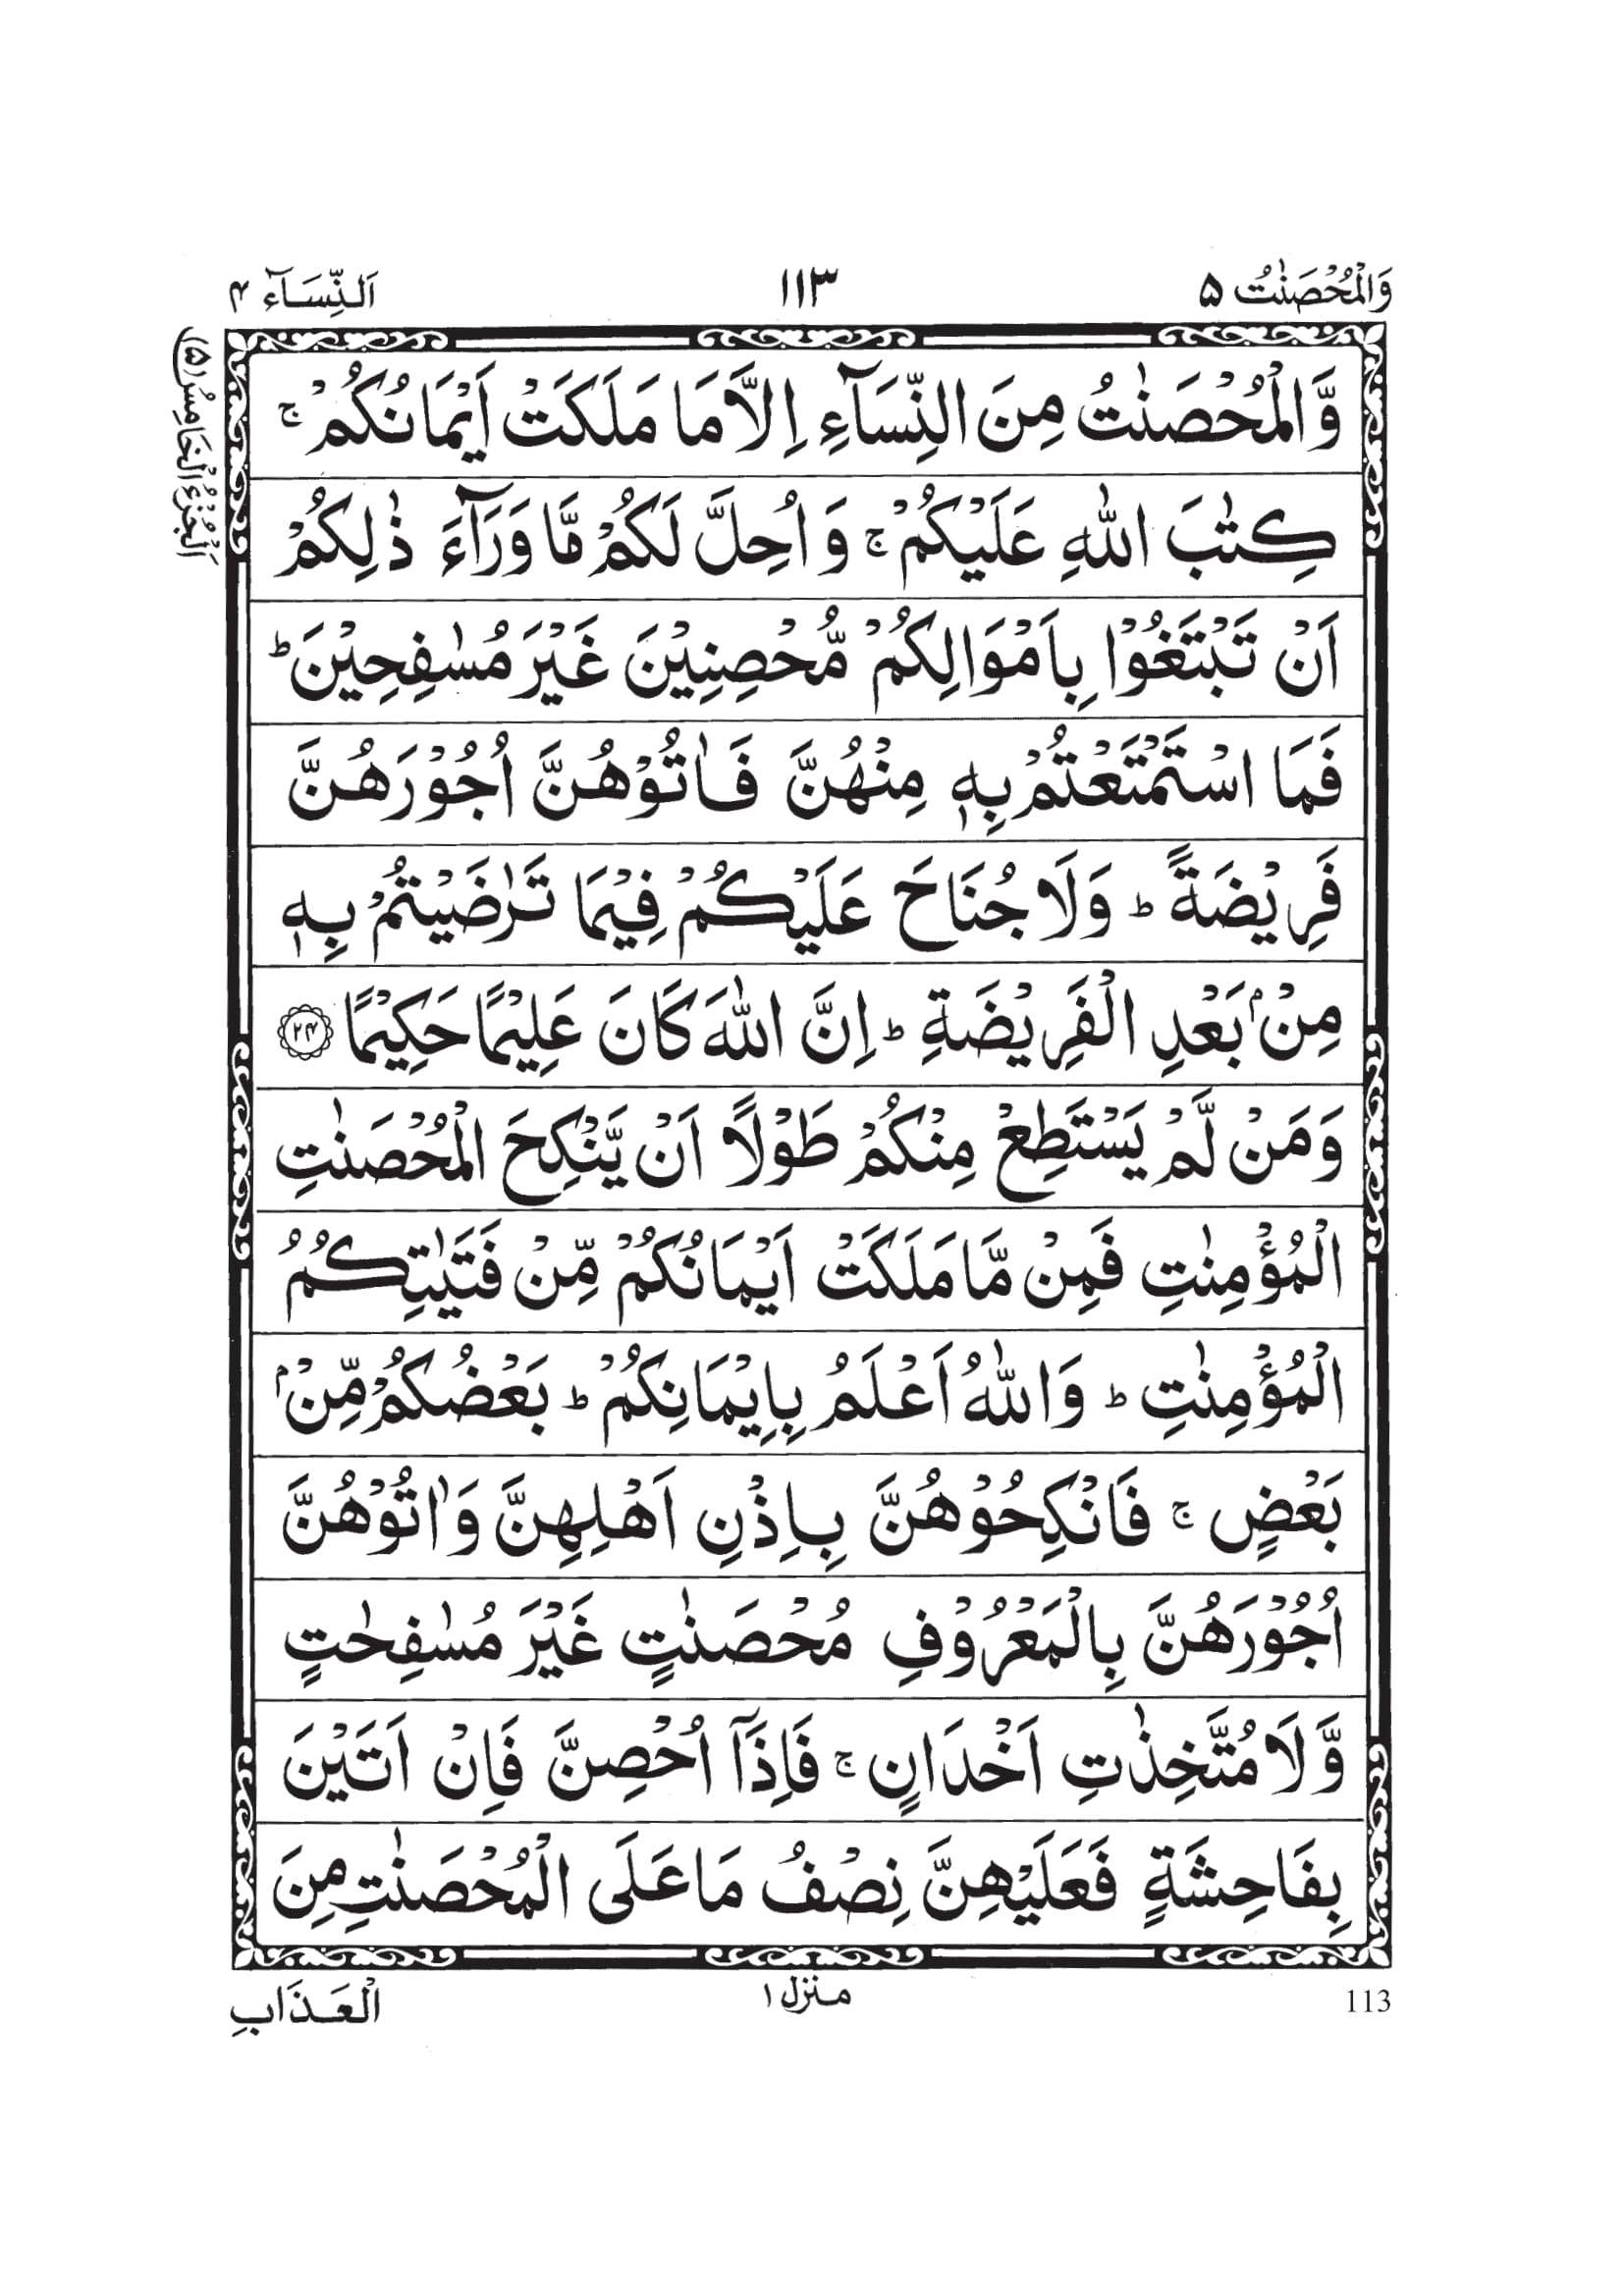 وَالْمُحْصَنٰتُ ۵
۱۱۳
اَلنِّسَآء ۴
اَلْجُزْءُ الْخَامِسُ (۵)
وَّالْمُحْصَنٰتُ مِنَ النِّسَآءِ اِلَّا مَا مَلَكَتْ اَيْمَانُكُمْ ۚ
كِتٰبَ اللّٰهِ عَلَيْكُمْ ۚ وَ اُحِلَّ لَكُمْ مَّا وَرَآءَ ذٰلِكُمْ
اَنْ تَبْتَغُوْا بِاَمْوَالِكُمْ مُّحْصِنِيْنَ غَيْرَ مُسٰفِحِيْنَ ؕ
فَمَا اسْتَمْتَعْتُمْ بِهٖ مِنْهُنَّ فَاٰتُوْهُنَّ اُجُوْرَهُنَّ
فَرِيْضَةً ؕ وَلَا جُنَاحَ عَلَيْكُمْ فِيْمَا تَرٰضَيْتُمْ بِهٖ
مِنْۢ بَعْدِ الْفَرِيْضَةِ ؕ اِنَّ اللّٰهَ كَانَ عَلِيْمًا حَكِيْمًا ۲۴
وَمَنْ لَّمْ يَسْتَطِعْ مِنْكُمْ طَوْلًا اَنْ يَّنْكِحَ الْمُحْصَنٰتِ
الْمُؤْمِنٰتِ فَمِنْ مَّا مَلَكَتْ اَيْمَانُكُمْ مِّنْ فَتَيٰتِكُمُ
الْمُؤْمِنٰتِ ؕ وَاللّٰهُ اَعْلَمُ بِاِيْمَانِكُمْ ؕ بَعْضُكُمْ مِّنْۢ
بَعْضٍ ۚ فَانْكِحُوْهُنَّ بِاِذْنِ اَهْلِهِنَّ وَاٰتُوْهُنَّ
اُجُوْرَهُنَّ بِالْمَعْرُوْفِ مُحْصَنٰتٍ غَيْرَ مُسٰفِحٰتٍ
وَّلَا مُتَّخِذٰتِ اَخْدَانٍ ۚ فَاِذَآ اُحْصِنَّ فَاِنْ اَتَيْنَ
بِفَاحِشَةٍ فَعَلَيْهِنَّ نِصْفُ مَا عَلَى الْمُحْصَنٰتِ مِنَ
113
منزل ۱
الْعَذَابِ